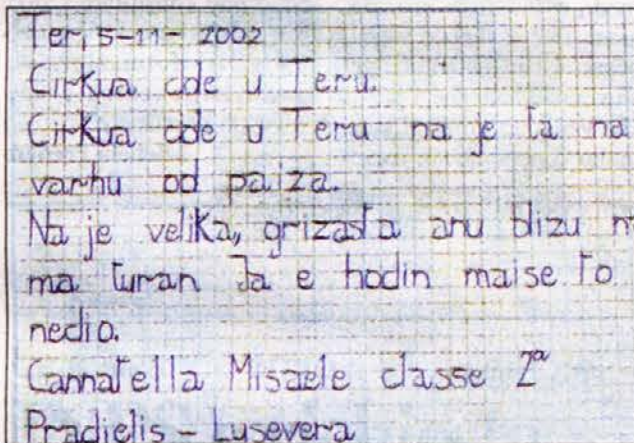 Ter, 5-11-2002
Cirkua cde u Teru.
Cirkua cde u Teru na je ta na
varhu od paiza.
Na je velika, grizasta anu blizu
ma turan Ja e hodin maise to
nedio.
Cannatella Misaele classe 2ª
Pradielis - Lusevera